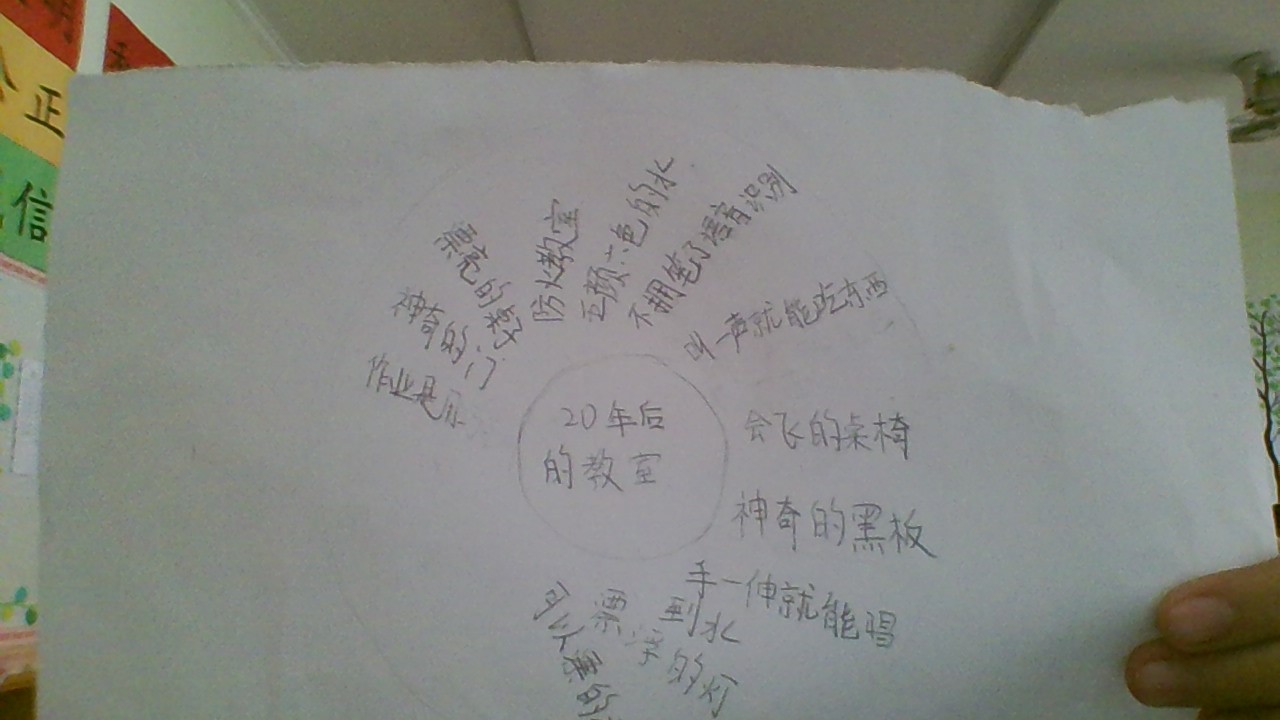 20年后
的教室
作业是
神奇的门
漂亮的
防火教室
五颜六色的水
不用笔了语音识别
叫一声就能吃东西
会飞的桌椅
神奇的黑板
手一伸就能喝
到水
漂浮的灯
可以
正
信